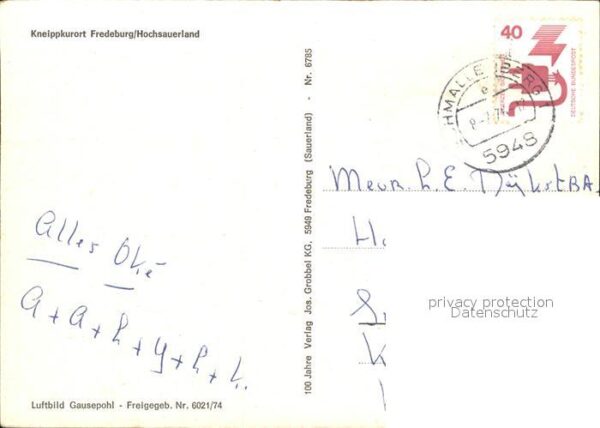 Kneippkurort Fredeburg/Hochsauerland
Alles Oké
A + A + h + y + h + h.
Luftbild Gausepohl - Freigegeb. Nr. 6021/74
100 Jahre Verlag Jos. Grobbel KG, 5949 Fredeburg (Sauerland) - Nr. 6785
40
DEUTSCHE BUNDESPOST
5948
Mevr. h. E. Dijkstra
H.
privacy protection
Datenschutz
K